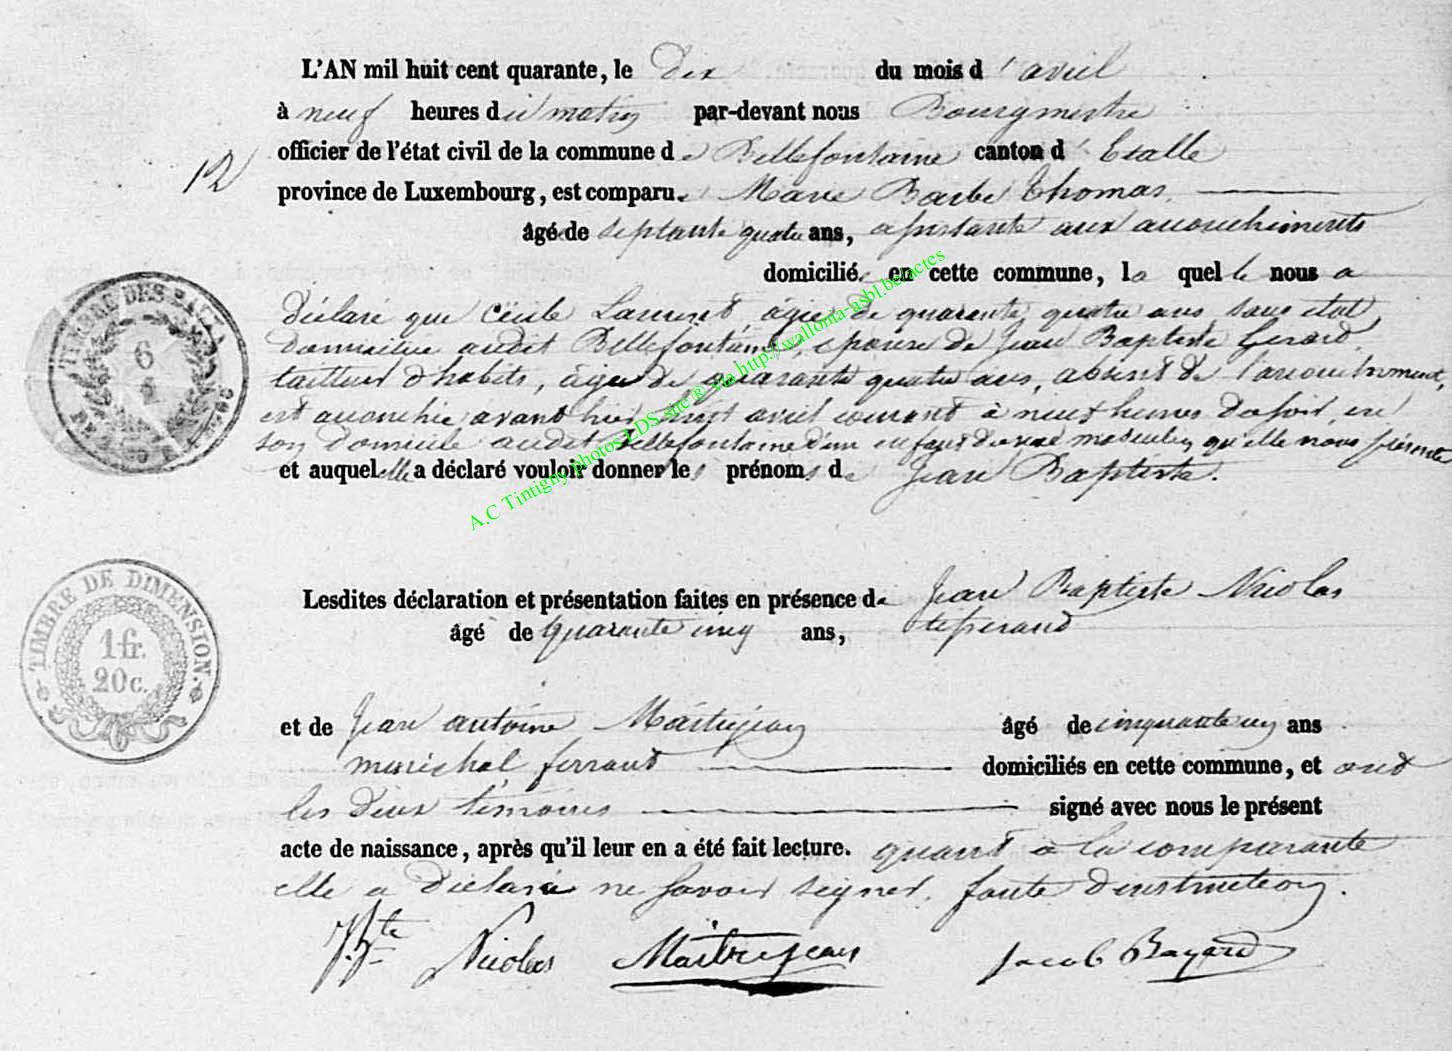 L'AN mil huit cent quarante, le dix du mois d'avril
à neuf heures du matin par-devant nous Bourgmestre
officier de l'état civil de la commune de Bellefontaine canton d'Etalle
12
province de Luxembourg, est comparue Marie Barbe Thomas
âgé de septante quatre ans, assistante aux accouchements
domicilié en cette commune, laquelle nous a
déclaré que Cécile Laurent âgée de quarante quatre ans sans état
domiciliée audit Bellefontaine, épouse de Jean Baptiste Gerard,
tailleur d'habits, âgé de quarante quatre ans, absent de l'accouchement,
est accouchée avant hier huit avril courant à neuf heures du soir, en
son domicile audit Bellefontaine d'un enfant du sexe masculin, qu'elle nous présente
et auquel elle a déclaré vouloir donner les prénoms de Jean Baptiste.
A.C Tintigny photos LDS site ® via http://wallonia-asbl.be/actes
TIMBRE DES
6
TIMBRE DE DIMENSION.
1 fr.
20 c.
Lesdites déclaration et présentation faites en présence de Jean Baptiste Nicolas
âgé de quarante cinq ans, tisserand
et de Jean Antoine Maitrejean âgé de cinquante cinq ans
maréchal ferrant domiciliés en cette commune, et ont
les deux témoins signé avec nous le présent
acte de naissance, après qu'il leur en a été fait lecture. quant à la comparante
elle a déclaré ne savoir signer, faute d'instruction.
J. Bte Nicolas Maitrejean Jacob Bayard